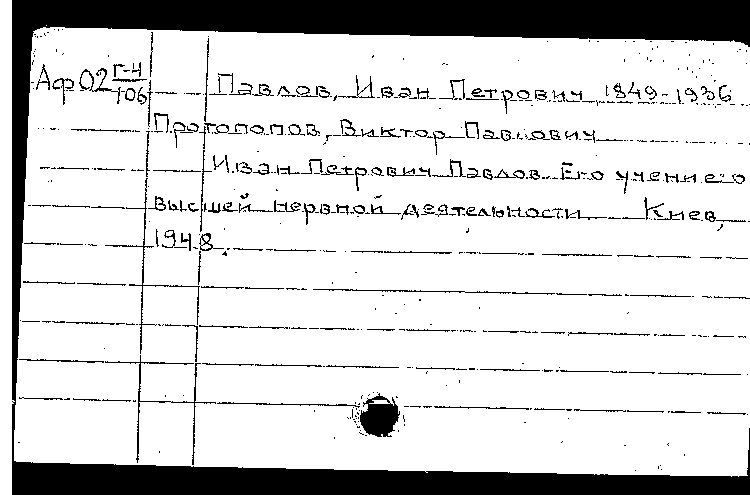 Аф02 Г-4/106 Павлов, Иван Петрович, 1849-1936
Протопопов, Виктор Павлович
Иван Петрович Павлов. Его учение о
высшей нервной деятельности. Киев,
1948.